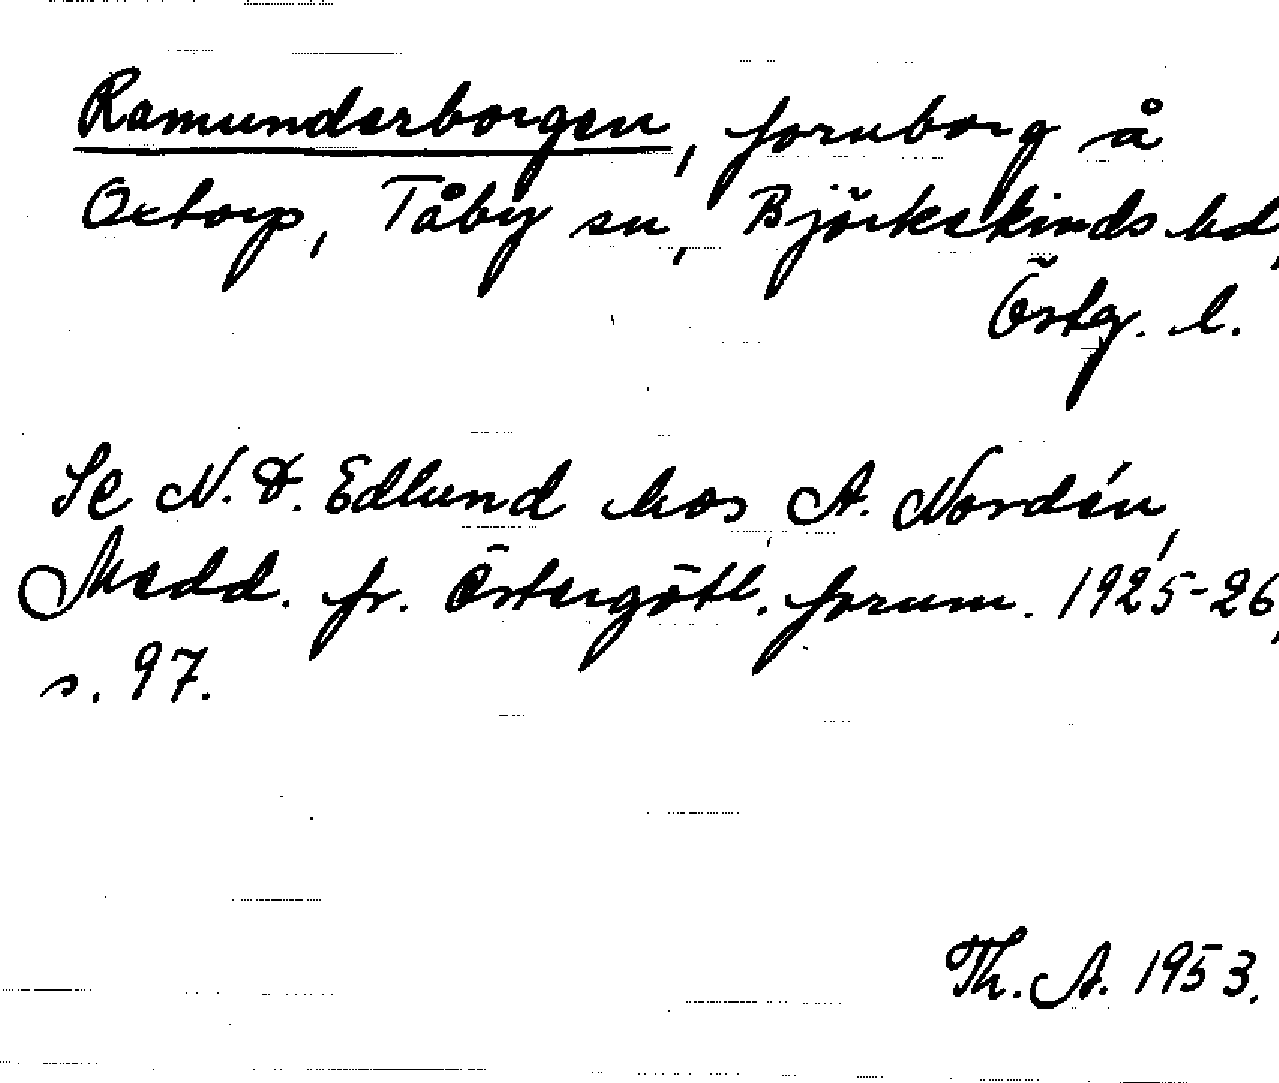 Ramunderborgen, fornborg å
Oxtorp, Tåby sn, Björkekinds hd,
Östg. l.
Se N. D. Edlund hos A. Nordén,
Medd. fr. Östergötl. fornm. 1925-26,
s. 97.
Th. A. 1953.